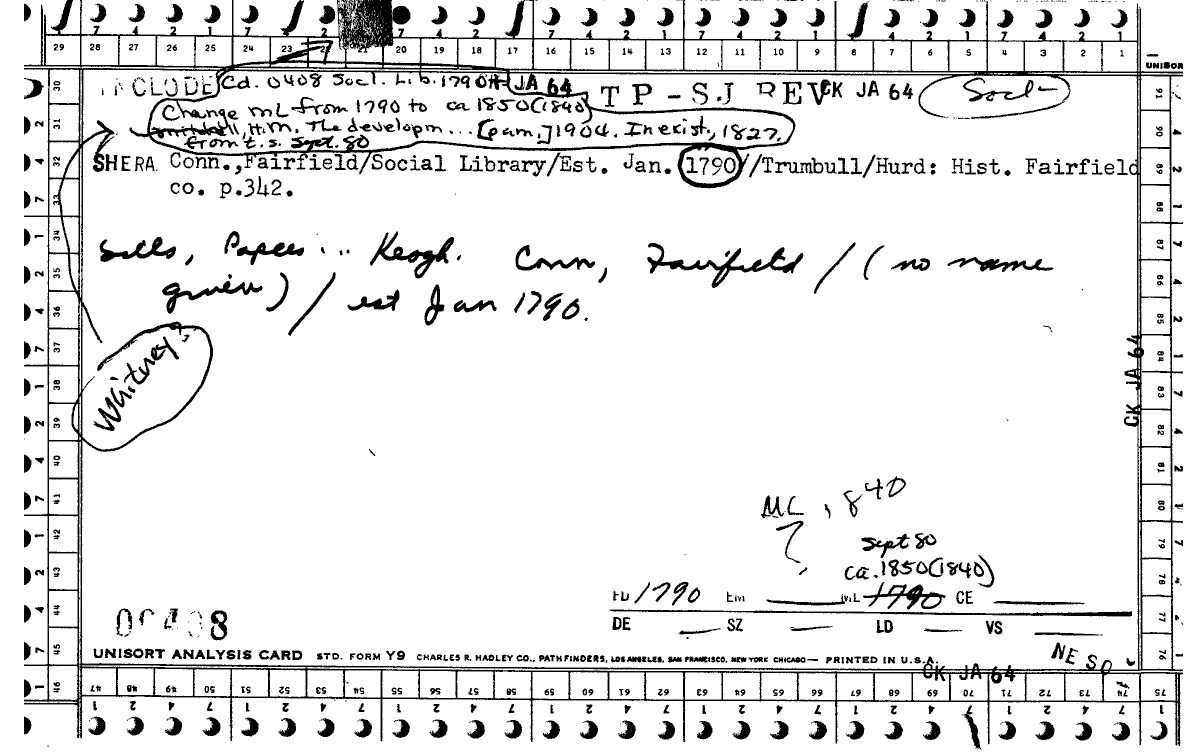 7 4 2 1 7 4 2 1 7 4 2 1 7 4 2 1 7 4 2 1
29 28 27 26 25 24 23 20 19 18 17 16 15 14 13 12 11 10 9 8 7 6 5 4 3 2 1
UNISORT
INCLUDE Cd. 0408 Socl. Lib. 1790 JA 64 TP-SJ REV CK JA 64 Socl-
Change mL from 1790 to ca 1850(1840)
H.M. The developm... [pam.] 1904. In exist, 1827.
from t.s. Sept. 80
SHERA Conn.,Fairfield/Social Library/Est. Jan. 1790//Trumbull/Hurd: Hist. Fairfield
co. p.342.
Sills, Papers ... Keogh. Conn, Fairfield / (no name
given) / est Jan 1790.
Whitney?
CK JA 64
ML 1840
?
Sept 80
ca. 1850(1840)
FD 1790 EM ML 1790 CE
DE SZ LD VS
00408
UNISORT ANALYSIS CARD STD. FORM Y9 CHARLES R. HADLEY CO., PATHFINDERS, LOS ANGELES, SAN FRANCISCO, NEW YORK CHICAGO— PRINTED IN U.S.A.
CK JA 64
NE SO
46 47 48 49 50 51 52 53 54 55 56 57 58 59 60 61 62 63 64 65 66 67 68 69 70 71 72 73 74 75